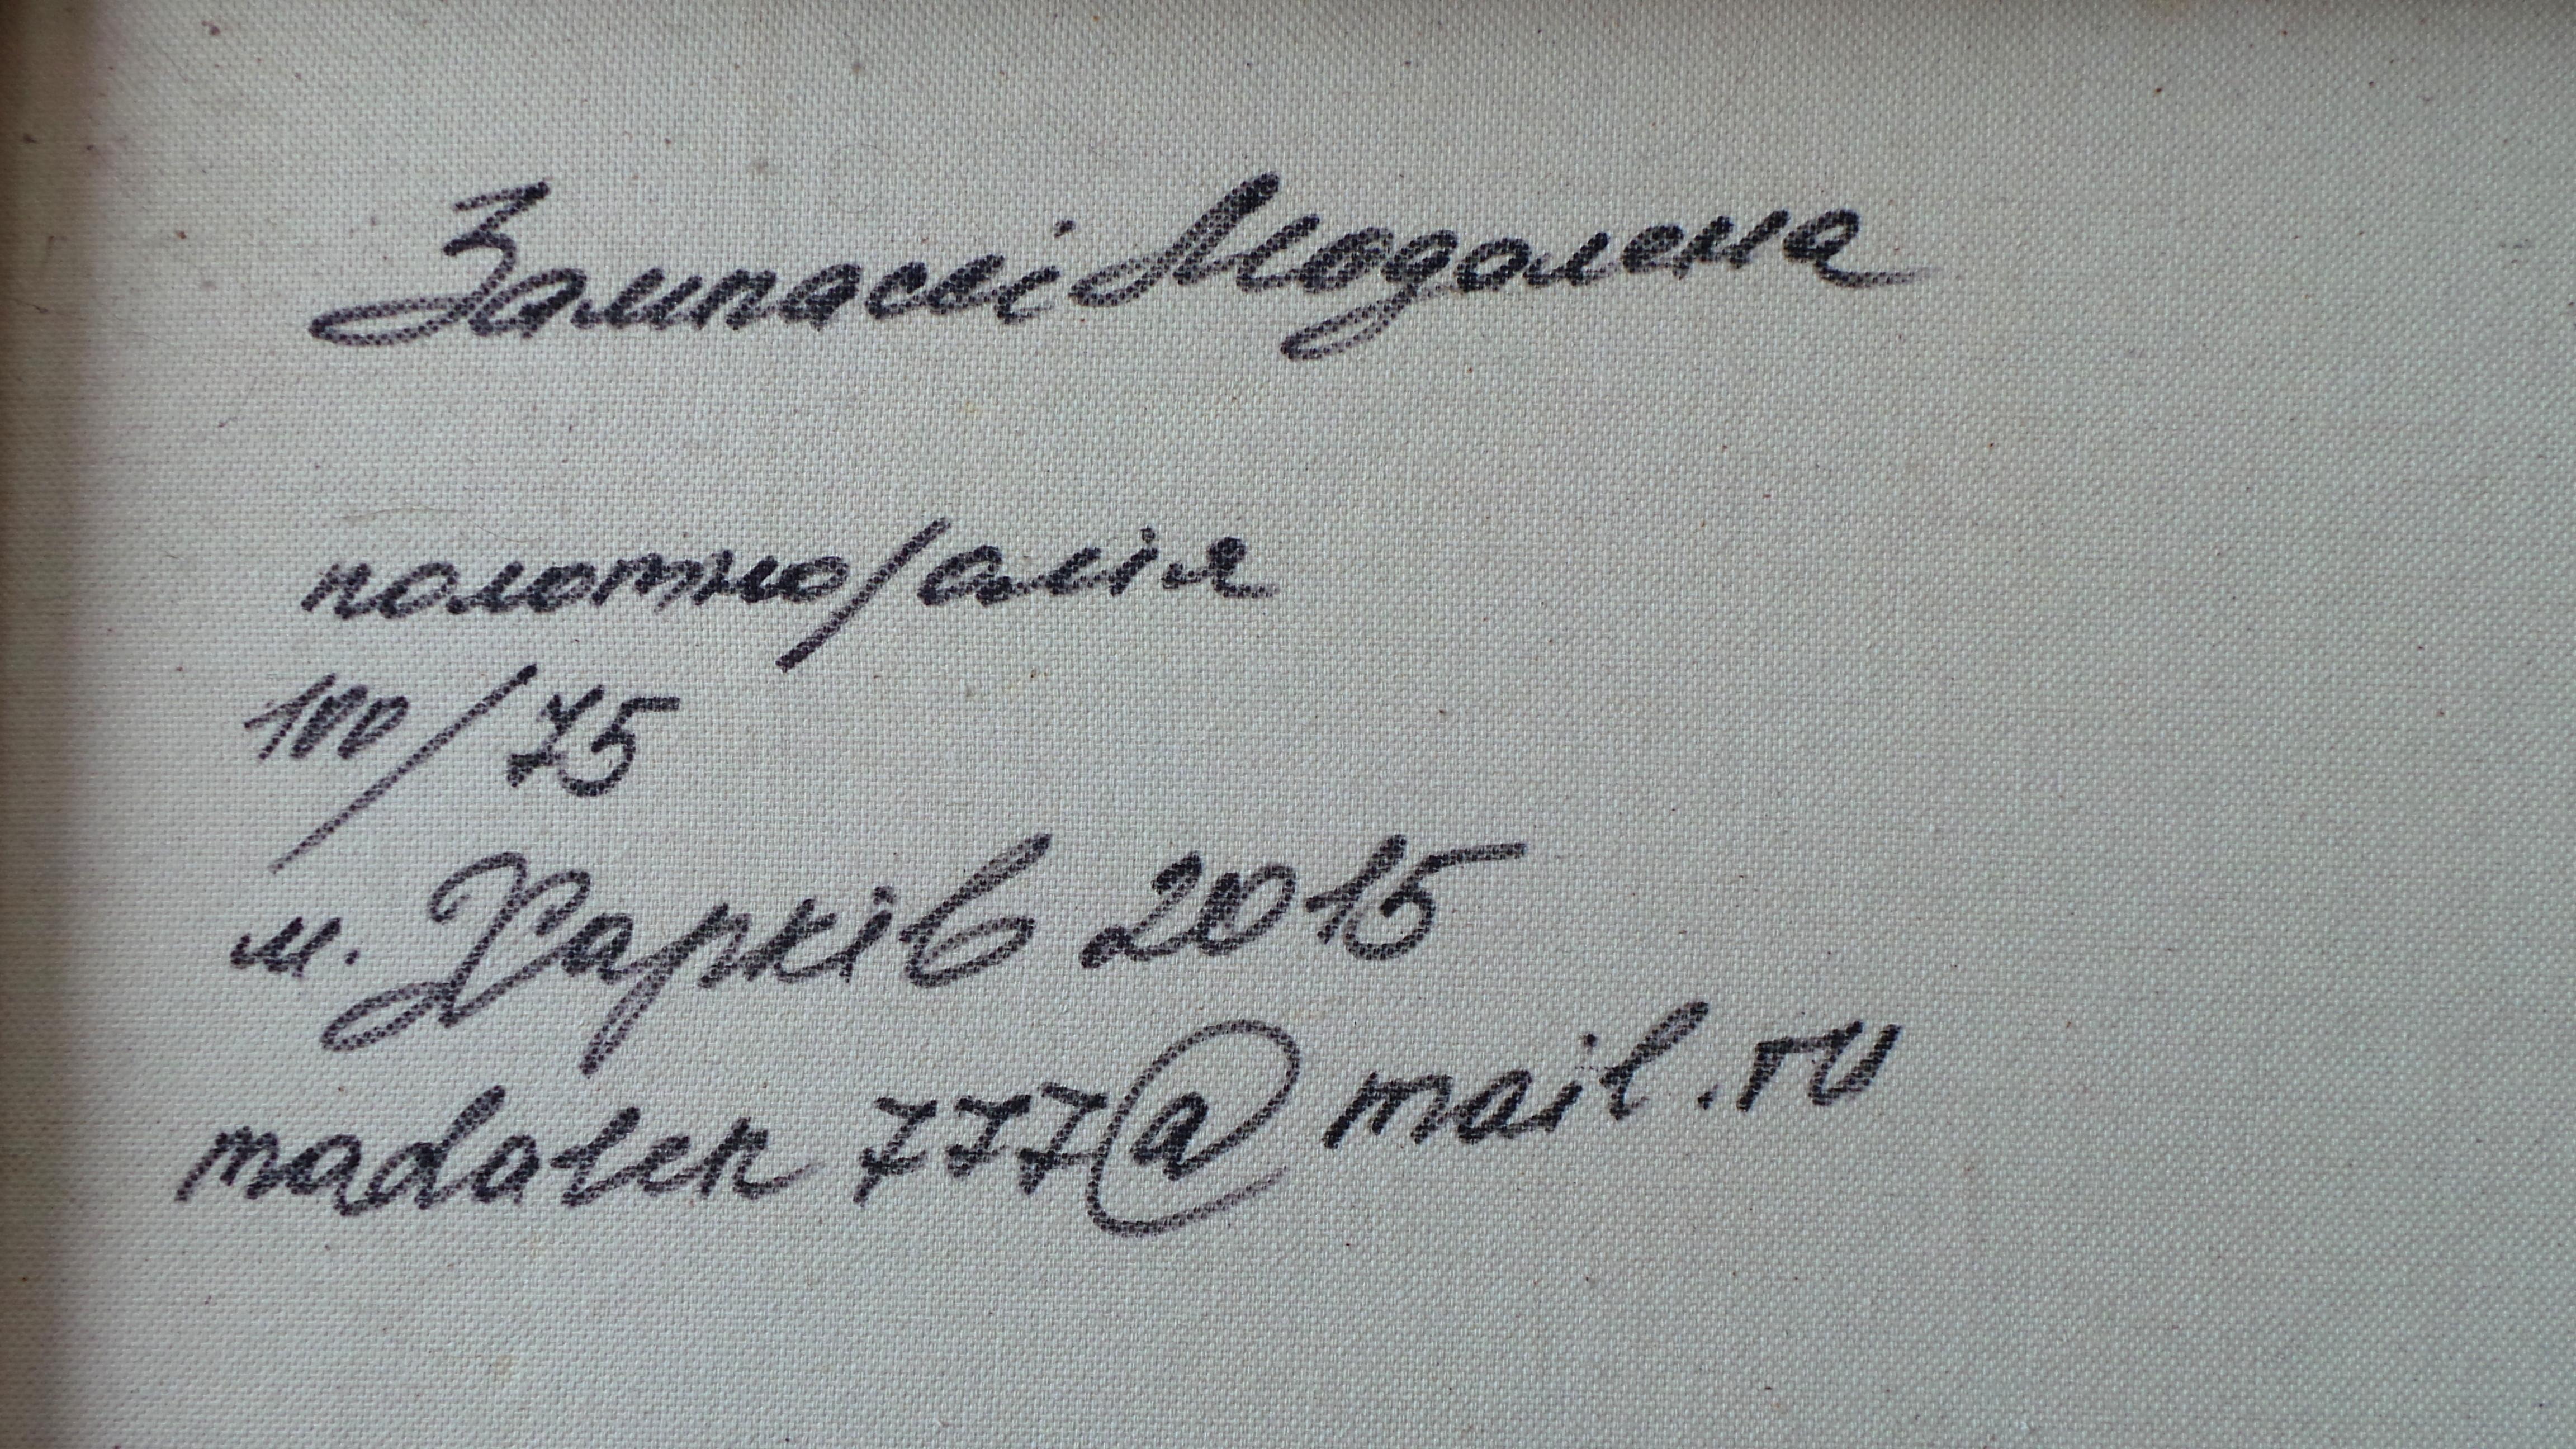 Зампассі Мадалена
полотно/олія
100/75
м. Харків 2015
madalen 777@mail.ru